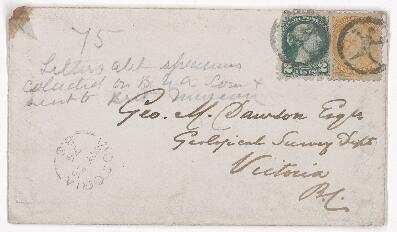 75
Letters abt specimens
collected on B.N.A. Com &
sent to Brit. Museum
2 CENTS 2
Geo. M. Dawson Esqre
Geological Survey Dept
Victoria
B.C.
VICTORIA